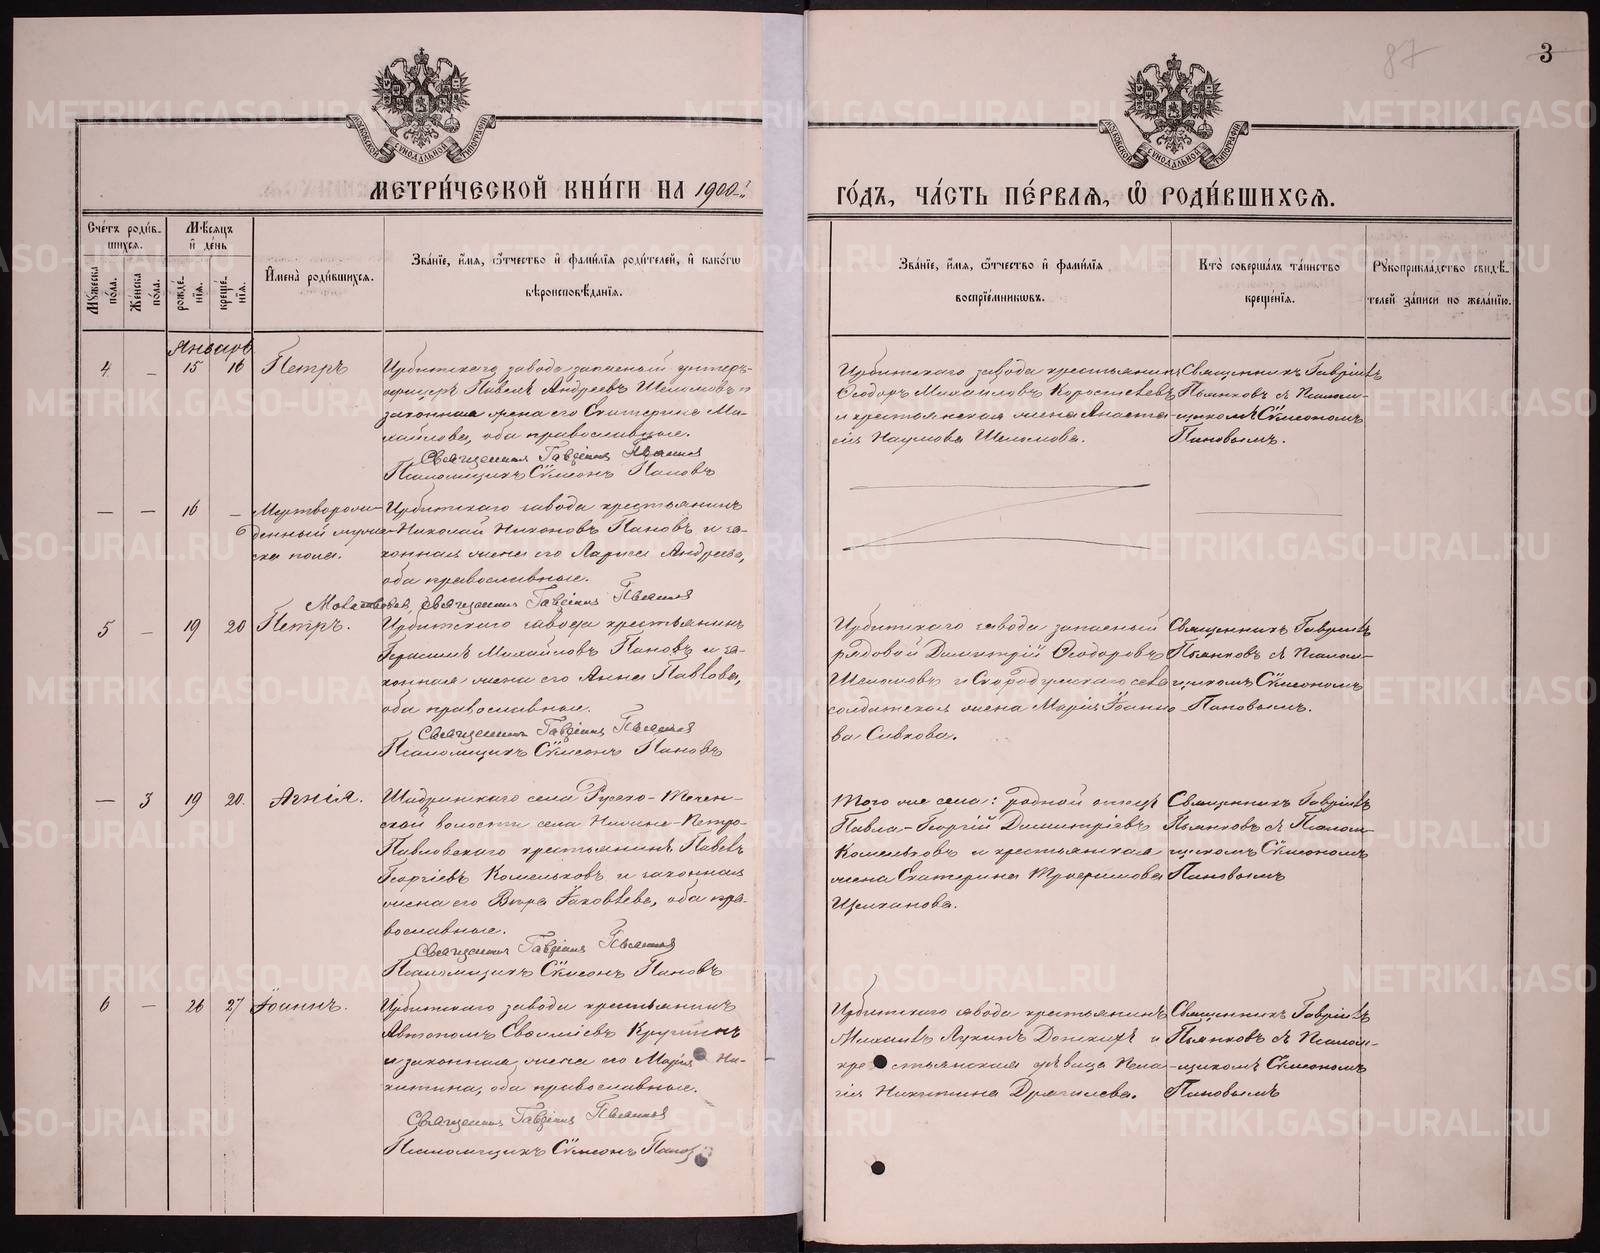 87
3
МОСКОВСКОЙ СѴНОДАЛЬНОЙ ТИПОГРАФІИ
МОСКОВСКОЙ СѴНОДАЛЬНОЙ ТИПОГРАФІИ
МЕТРИ́ЧЕСКОЙ КНИ́ГИ НА 1900 г.
ГО́ДЪ, ЧА́СТЬ ПЕ́РВАЯ, Ѽ РОДИ́ВШИХСЯ.
Сче́тъ роди́в-
шихся.
Мꙋжеска по́ла.
Женска по́ла.
Мѣсяцъ и де́нь
рожде́-нїя.
креще́-нїя.
И҆мена̀ роди́вшихся.
Зва́нїе, и҆́мя, ѻ҆́тчество и҆ фами́лїя роди́телей, и҆ како́гѡ
вѣроисповѣ́данїя.
Зва́нїе, и҆́мя, ѻ҆́тчество и҆ фами́лїя
воспрїе́мникѡвъ.
Кто̀ соверша́лъ та́инство
креще́нїя.
Рꙋкоприкла́дство свидѣ́-
телей за́писи по жела́нїю.
Январь
4 – 15 16 Петръ
Ирбитскаго завода запасный унтеръ-
офицеръ Павелъ Андреевъ Шеломовъ и
законная жена его Екатерина Ми-
хайлова, оба православные.
Священник Гавріил Пьянков
Псаломщикъ Сѵмеонъ Пановъ
Ирбитскаго завода крестьянинъ
Ѳеодоръ Михайловъ Коростелевъ
и крестьянская жена Анаста-
сія Наумова Шеломова.
Священникъ Гавріилъ
Пьянковъ съ Псалом-
щикомъ Сѵмеономъ
Пановымъ.
– – 16 – Мертворож-
денный муже-
ска пола.
Ирбитскаго завода крестьянинъ
Николай Никоновъ Пановъ и за-
конная жена его Лариса Андреева,
оба православные.
священник Гавріил Пьянков
5 – 19 20 Петръ.
Ирбитскаго завода крестьянинъ
Герасимъ Михайловъ Пановъ и за-
конная жена его Анна Павлова,
оба православные.
Священник Гавріил Пьянков
Псаломщикъ Сѵмеонъ Пановъ
Ирбитскаго завода запасный
рядовой Димитрій Ѳеодоровъ
Шеломовъ и Скородумскаго села
солдатская жена Марія Іоанно-
ва Сивкова.
Священникъ Гавріилъ
Пьянковъ съ Псалом-
щикомъ Сѵмеономъ
Пановымъ.
– 3 19 20. Агнія.
Шадринскаго села Русско-Течен-
ской волости села Нижне-Петро-
Павловскаго крестьянинъ Павелъ
Георгіевъ Комельковъ и законная
жена его Вѣра Іаковлева, оба пра-
вославные.
Священник Гавріил Пьянков
Псаломщикъ Сѵмеонъ Пановъ
Того же села: родной отецъ
Павла – Георгій Димитріевъ
Комельковъ и крестьянская
жена Екатерина Трофимова
Священникъ Гавріилъ
Пьянковъ съ Псалом-
щикомъ Сѵмеономъ
Пановымъ
6 – 26 27 Іоаннъ.
Ирбитскаго завода крестьянинъ
Автономъ
и законная жена его Марія Ни-
китина, оба православные.
Священник Гавріил Пьянков
Псаломщикъ Сѵмеонъ Пановъ
Ирбитскаго завода крестьянинъ
Михаилъ Лукинъ Донскихъ и
крестьянская дѣвица Пела-
гія Никитина Драчилева.
Священникъ Гавріилъ
Пьянковъ съ Псалом-
щикомъ Сѵмеономъ
Пановымъ
METRIKI.GASO-URAL.RU